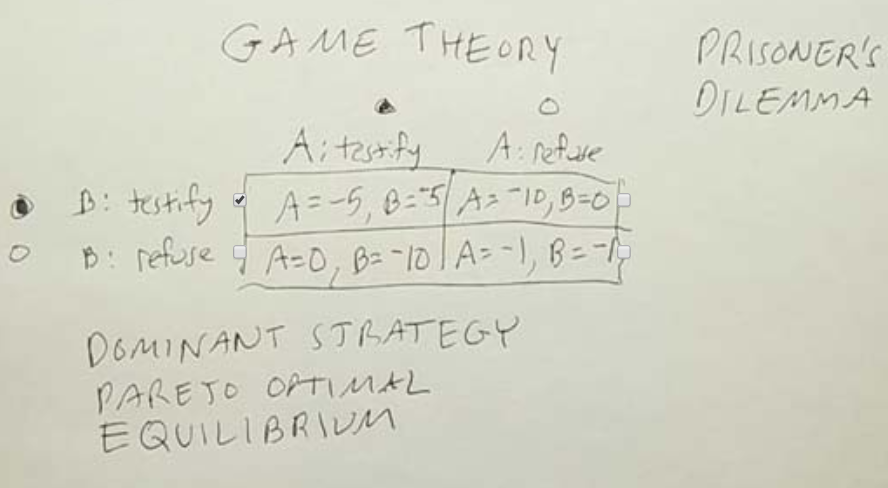 GAME THEORY
PRISONER'S
DILEMMA
A: testify A: refuse
B: testify A=-5, B=-5 A=-10, B=0
B: refuse A=0, B=-10 A=-1, B=-1
DOMINANT STRATEGY
PARETO OPTIMAL
EQUILIBRIUM